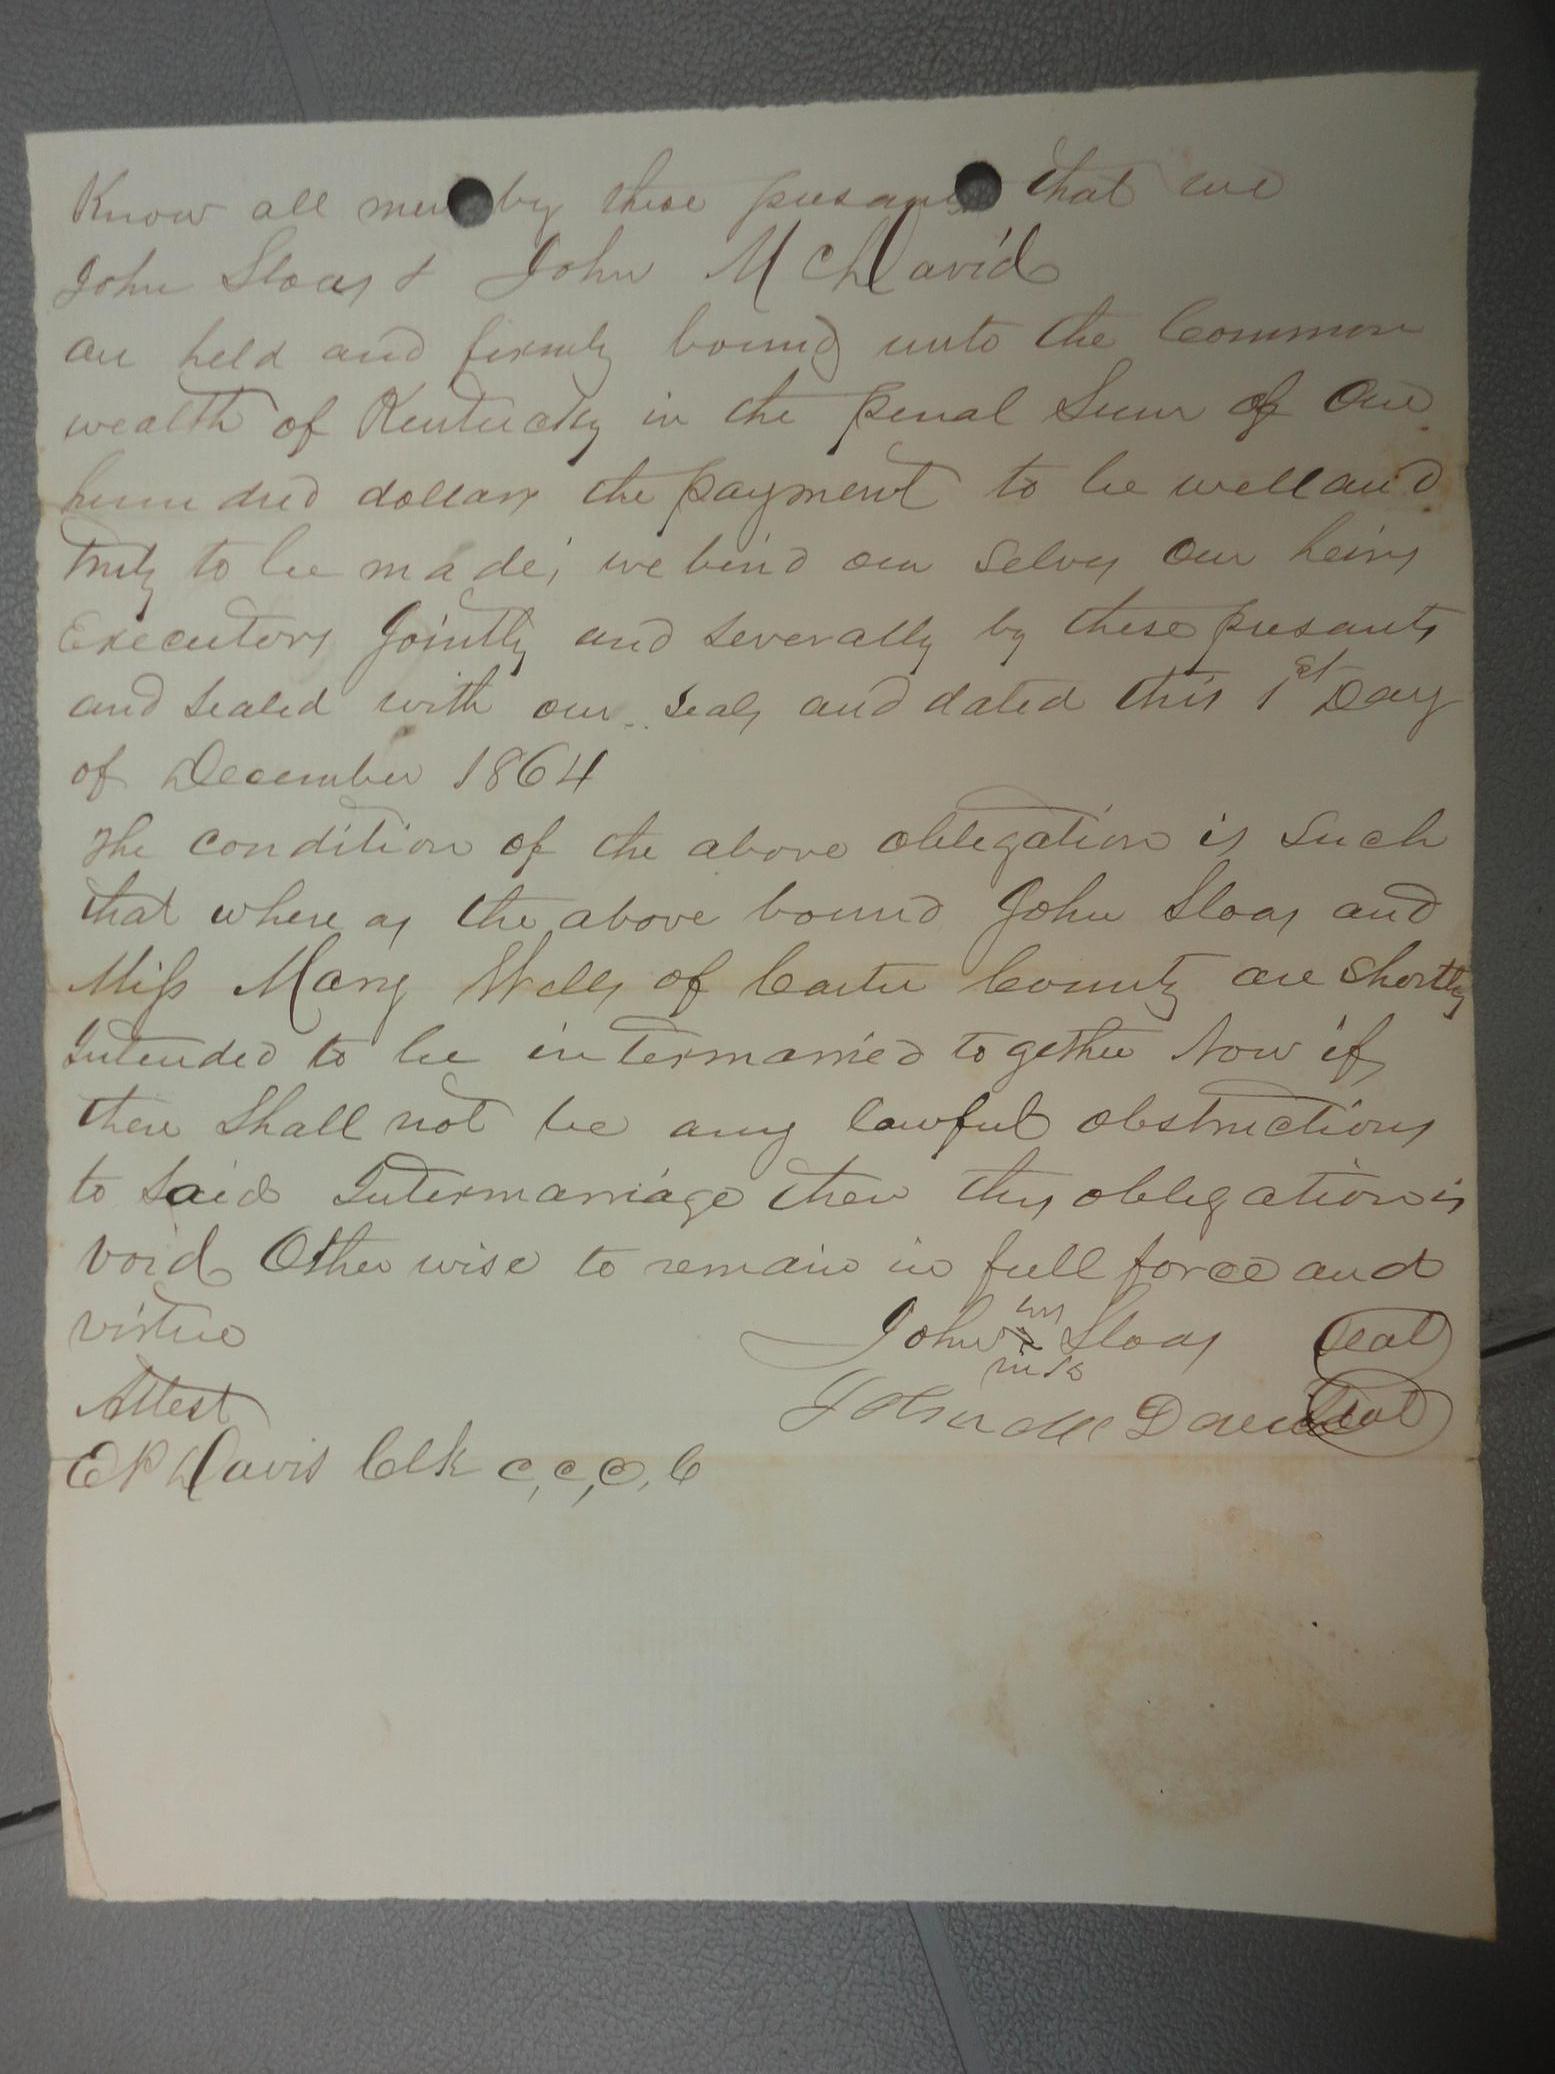 Know all men by these presants that we
John Sloas & John McDavid
are held and firmly bound unto the Common
wealth of Kentucky in the penal Sum of One
hundred dollars the payment to be well and
truly to be made; we bind our selves our heirs
Executors Jointly and severally by these presants
and sealed with our seals and dated this 1st Day
of December 1864
The condition of the above obligation is such
that where as the above bound John Sloas and
Miss Mary Wells of Carter County are shortly
Intended to be intermarried together Now if
there Shall not be any lawful obstructions
to said Intermarriage then this obligation is
void Other wise to remain in full force and
virtue
his
John x Sloas Seal
mark
John Mc David Seal
Attest
E P Davis Clk C, C, C, C